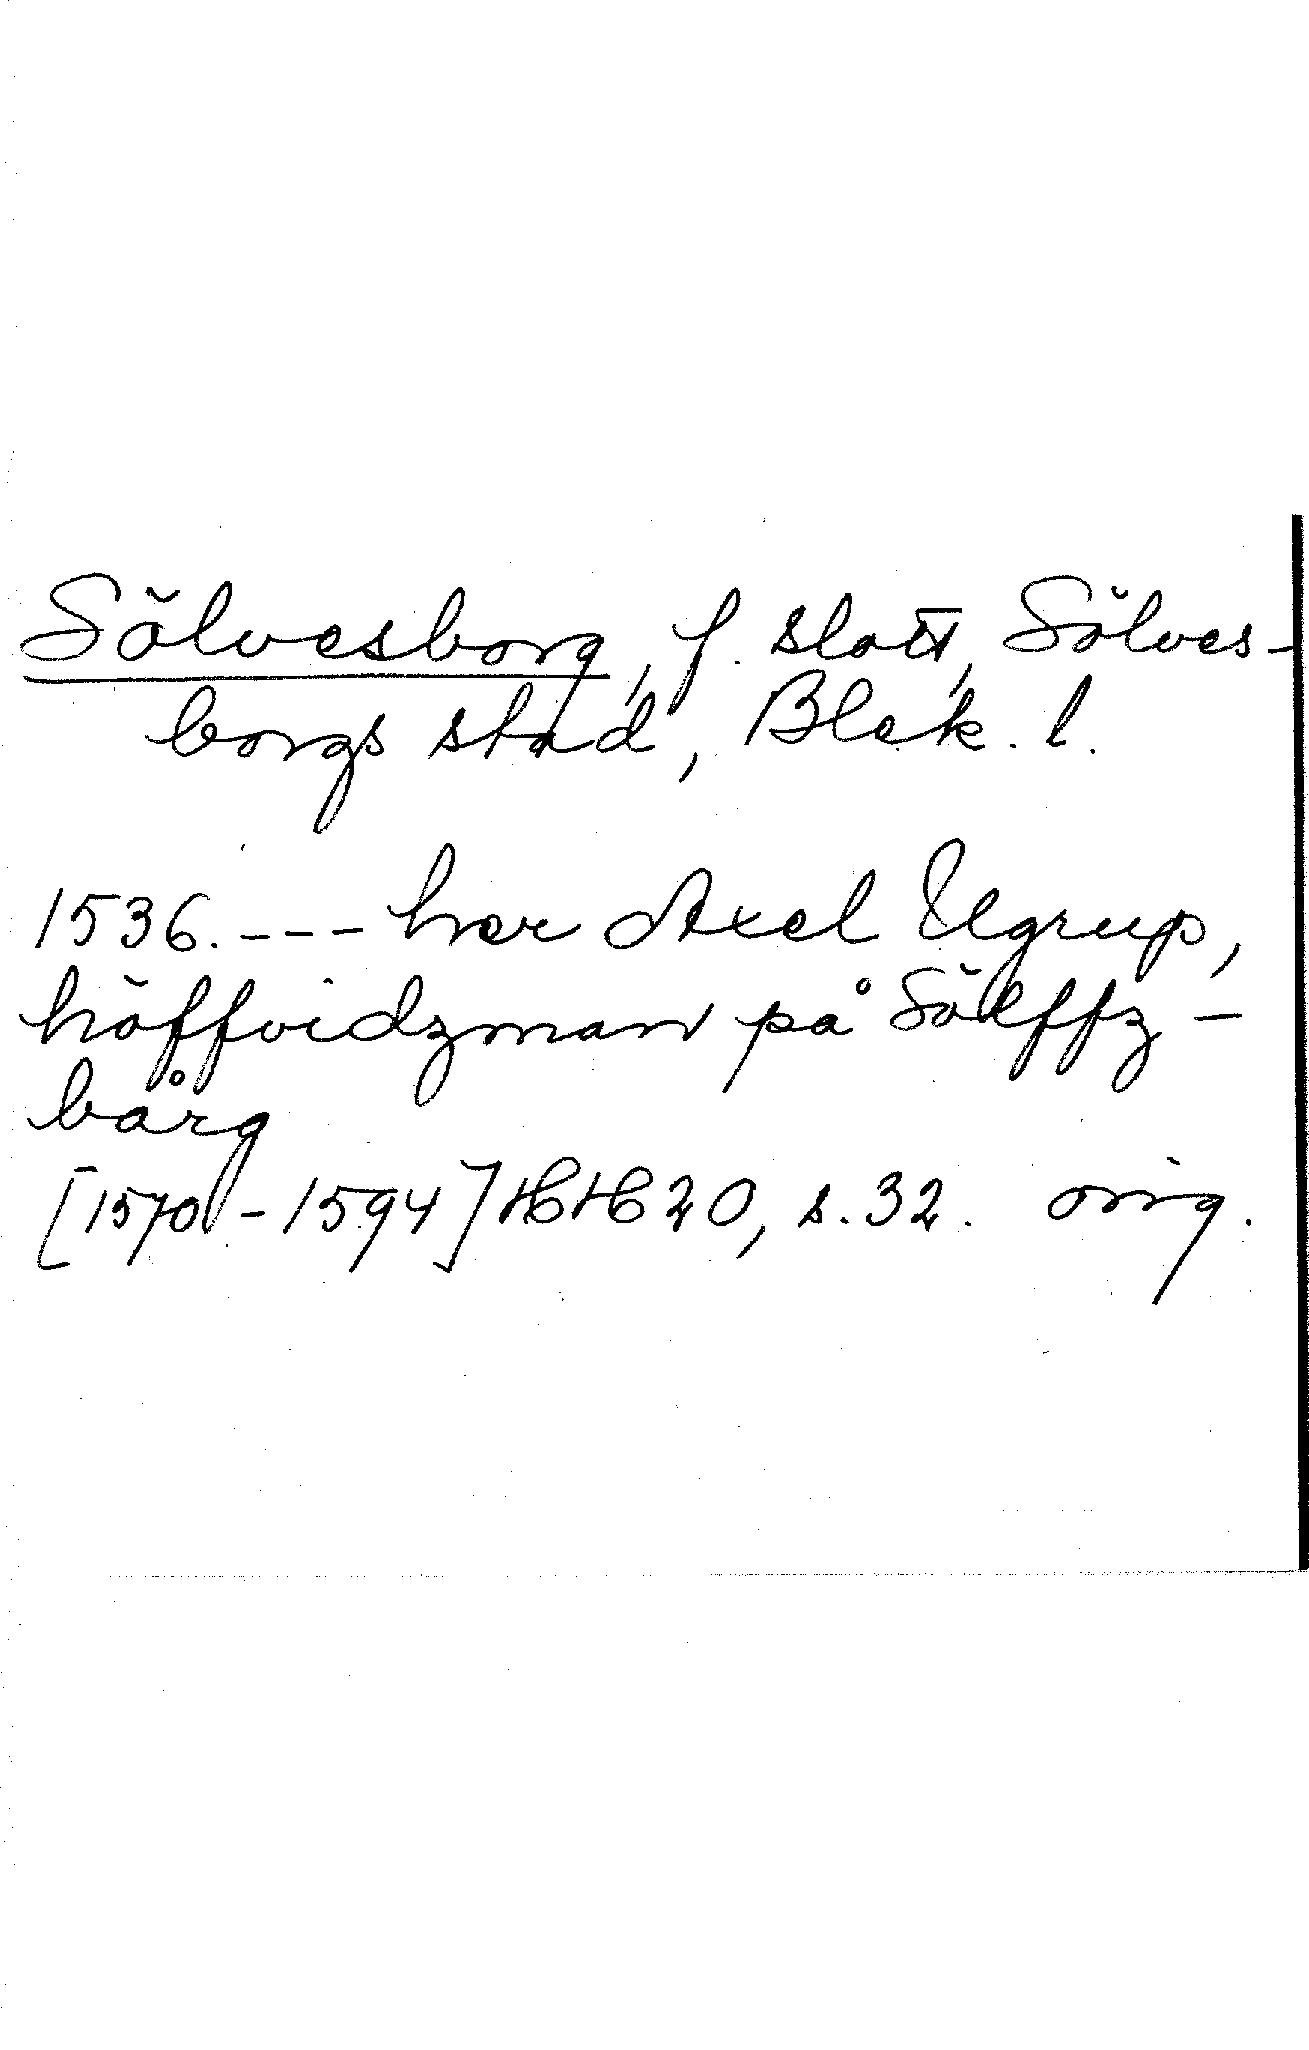 Sölvesborg, f. slott, Sölves-
borgs stad, Blek. l.
1536. --- her Axel Ugrup,
höffvidzman på Sölffz-
bårg
[1570-1594] HH 20, s. 32. orig.